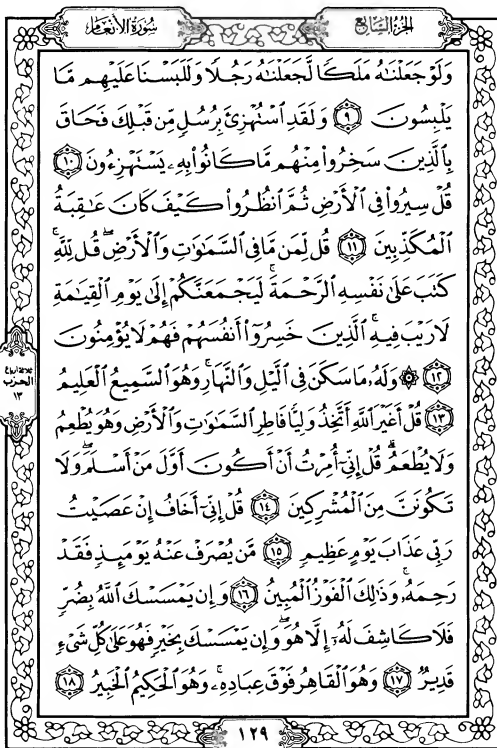 سُورَةُ الأَنْعَام
الجُزْءُ السَّابِعُ
وَلَوْ جَعَلْنَٰهُ مَلَكًا لَّجَعَلْنَٰهُ رَجُلًا وَلَلَبَسْنَا عَلَيْهِم مَّا
يَلْبِسُونَ ۝٩ وَلَقَدِ ٱسْتُهْزِئَ بِرُسُلٍ مِّن قَبْلِكَ فَحَاقَ
بِٱلَّذِينَ سَخِرُوا۟ مِنْهُم مَّا كَانُوا۟ بِهِۦ يَسْتَهْزِءُونَ ۝١٠
قُلْ سِيرُوا۟ فِى ٱلْأَرْضِ ثُمَّ ٱنظُرُوا۟ كَيْفَ كَانَ عَٰقِبَةُ
ٱلْمُكَذِّبِينَ ۝١١ قُل لِّمَن مَّا فِى ٱلسَّمَٰوَٰتِ وَٱلْأَرْضِ ۖ قُل لِّلَّهِ ۚ
كَتَبَ عَلَىٰ نَفْسِهِ ٱلرَّحْمَةَ ۚ لَيَجْمَعَنَّكُمْ إِلَىٰ يَوْمِ ٱلْقِيَٰمَةِ
لَا رَيْبَ فِيهِ ۚ ٱلَّذِينَ خَسِرُوٓا۟ أَنفُسَهُمْ فَهُمْ لَا يُؤْمِنُونَ
۝١٢ ۞ وَلَهُۥ مَا سَكَنَ فِى ٱلَّيْلِ وَٱلنَّهَارِ ۚ وَهُوَ ٱلسَّمِيعُ ٱلْعَلِيمُ
۝١٣ قُلْ أَغَيْرَ ٱللَّهِ أَتَّخِذُ وَلِيًّا فَاطِرِ ٱلسَّمَٰوَٰتِ وَٱلْأَرْضِ وَهُوَ يُطْعِمُ
وَلَا يُطْعَمُ ۗ قُلْ إِنِّىٓ أُمِرْتُ أَنْ أَكُونَ أَوَّلَ مَنْ أَسْلَمَ ۖ وَلَا
تَكُونَنَّ مِنَ ٱلْمُشْرِكِينَ ۝١٤ قُلْ إِنِّىٓ أَخَافُ إِنْ عَصَيْتُ
رَبِّى عَذَابَ يَوْمٍ عَظِيمٍ ۝١٥ مَّن يُصْرَفْ عَنْهُ يَوْمَئِذٍ فَقَدْ
رَحِمَهُۥ ۚ وَذَٰلِكَ ٱلْفَوْزُ ٱلْمُبِينُ ۝١٦ وَإِن يَمْسَسْكَ ٱللَّهُ بِضُرٍّ
فَلَا كَاشِفَ لَهُۥٓ إِلَّا هُوَ ۖ وَإِن يَمْسَسْكَ بِخَيْرٍ فَهُوَ عَلَىٰ كُلِّ شَىْءٍ
قَدِيرٌ ۝١٧ وَهُوَ ٱلْقَاهِرُ فَوْقَ عِبَادِهِۦ ۚ وَهُوَ ٱلْحَكِيمُ ٱلْخَبِيرُ ۝١٨
ثلاثة أرباع
الحزب
١٣
١٢٩